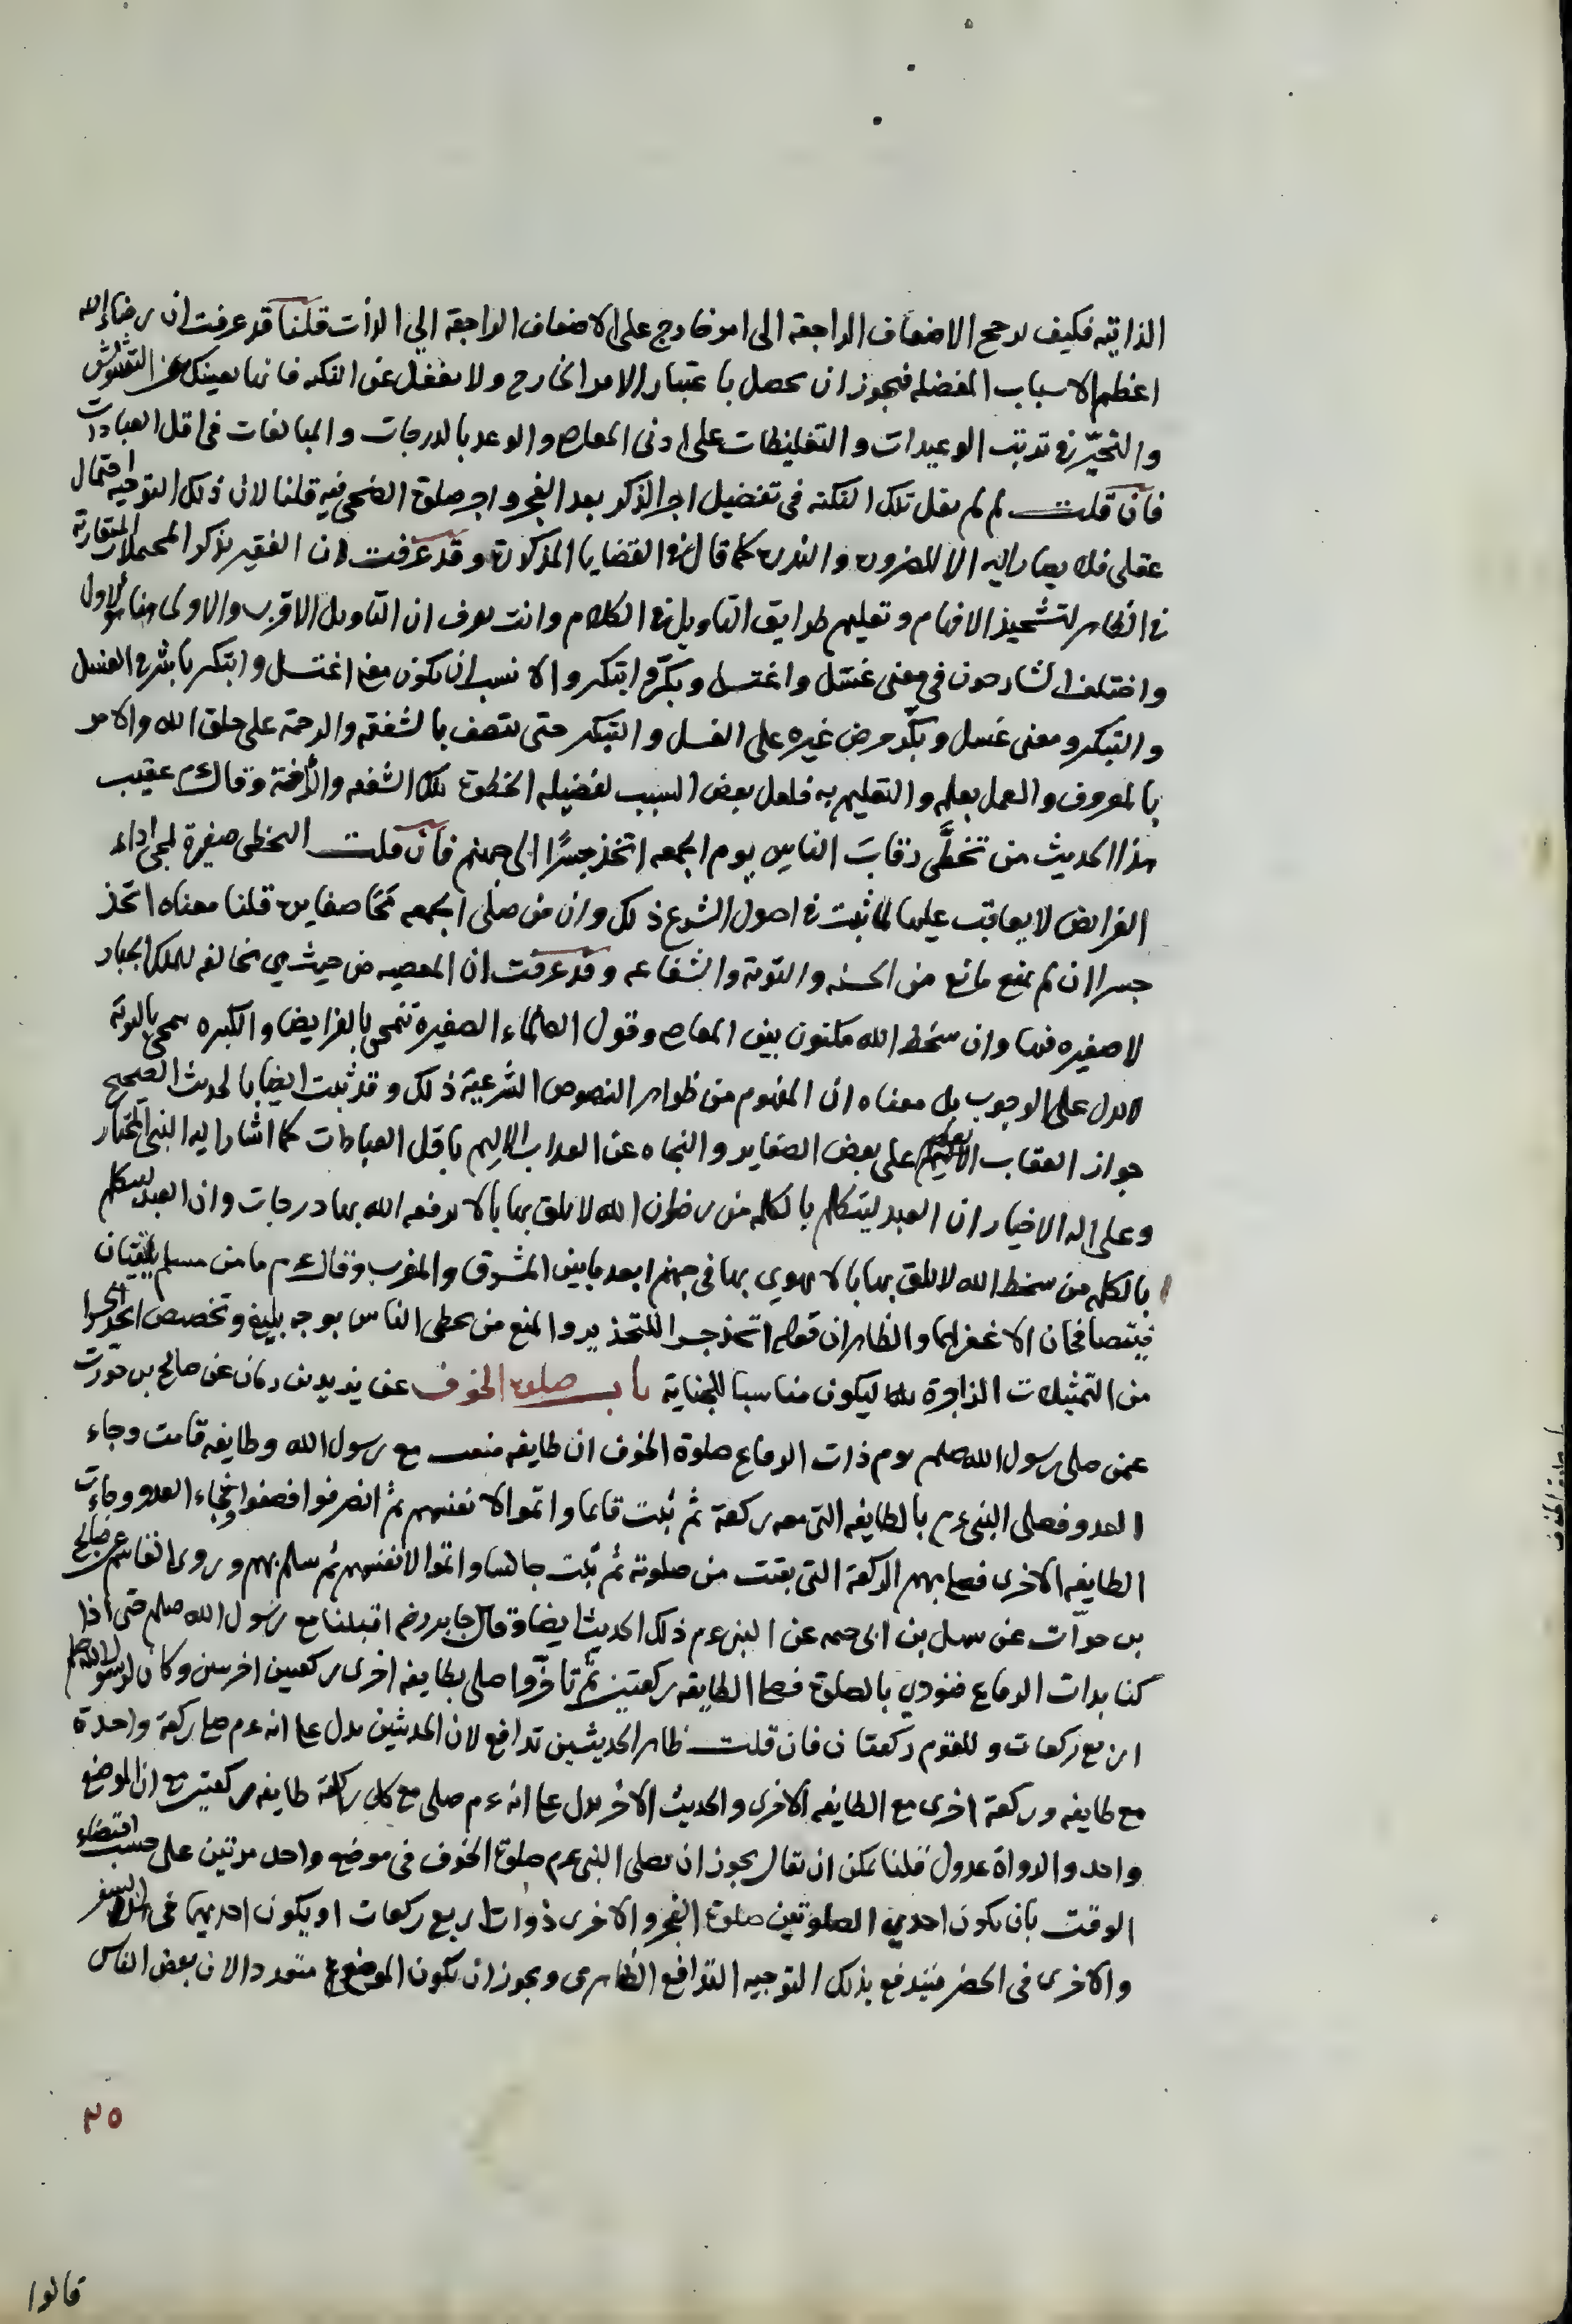 الذاتية فكيف يرجح الاضعاف الراجعة الى امر خارج على الاضعاف الراجعة الي الذات قلنا قد عرفت ان رضاء الله
اعظم الاسباب المفضله فيجوز ان يحصل باعتبار الامر الخارج ولا يغفل عن النكته فانها يعينك عن التشوش
والتحيّر في ترتب الوعيدات والتغليظات على ادنى المعاصي والوعد بالدرجات والمبالغات في اقل العبادات
فان قلت لم لم يقل تلك النكته في تفضيل اجر الذكر بعد الفجر واجر صلوة الضحى فيه قلنا لان ذلك التوجيه احتمال
عقلي فلا يصار اليه الا للضرورة والندرة كما قال في القضايا المذكورة وقد عرفت ان الفقير يذكر المحتملات المتقاربة
في الظاهر لتشحيذ الافهام وتعليم طرايق التاويل في الكلام وانت تعرف ان التاويل الاقرب والاولى هنا هو الاول
واختلف الشارحون في معنى غسّل واغتسل وبكّر وابتكر والانسب ان يكون معنى اغتسل وابتكر باشر في الغسل
والتبكير ومعنى غسل وبكّر حرض غيره على الغسل والتبكير حتى يتصف بالشفقة والرحمة على خلق الله والامر
بالمعروف والعمل بعلمه والتعليم به فلعل بعض السبب لفضيلة الخطوة تلك الشفقه والرأفة وقال ع م عقيب
هذا الحديث من تخطَّى رقابَ الناس يوم الجمعه اتخذ جسرًا الى جهنم فان قلت التخطي صغيرة لمجي اداء
الفرايض لا يعاقب عليها لما ثبت في اصول الشرع ذلك وان من صلى الجمعه محا صغايره قلنا معناه اتخذ
جسرا ان لم يمنع مانع من الحسنه والتوبة والشفاعه وقد عرفت ان المعصيه من حيث هي مخالفه للملك الجبار
لا صغيره فيها وان سخط الله مكنون بين المعاصي وقول العلماء الصغيرة تنمحي بالفرايض والكبيره يمحى بالتوبة
لا يدل على الوجوب بل معناه ان المفهوم من ظواهر النصوص الشرعية ذلك وقد ثبت ايضا بالحديث الصحيح
جواز العقاب الاليم على بعض الصغاير والنجاه عن العذاب الاليم باقل العبادات كما اشار اليه النبي المختار
وعلى اله الاخيار ان العبد ليتكلم بالكلمه من رضوان الله لا يلقى بها بالا يرفعه الله بها درجات وان العبد ليتكلم
بالكلمه من سخط الله لا يلقى بها بالا يهوي بها في جهنم ابعد ما بين المشرق والمغرب وقال ع م ما من مسلمين يلتقيان
فيتصافحان الا غفر لهما والظاهر ان قوله اتخذ جسرا للتحذير والمنع من تخطي الناس بوجه بليغ وتخصيص اتخاذ الجسر
من التمثيلات الزاجرة ليكون مناسبا للجناية باب صلوة الخوف عن يزيد بن رمان عن صالح بن خوّات
عمن صلى رسول الله صلم يوم ذات الرقاع صلوة الخوف ان طايفه صفت مع رسول الله وطايفه قامت وجاء
العدو فصلى النبي ع م بالطايفه التي معه ركعة ثم ثبت قايما واتموا لانفسهم ثم انصرفوا فصفوا وجاء العدو وجاءت
الطايفه الاخرى فصلى بهم الركعة التي بقيت من صلوته ثم ثبت جالسا واتموا لانفسهم ثم سلم بهم وروى القاسم عن صالح
بن خوّات عن سهل بن ابي حثمه عن النبي ع م ذلك الحديث ايضا وقال جابر رضه اقبلنا مع رسول الله صلم حتى اذا
كنا بذات الرقاع فنودي بالصلوة فصلى الطايفه ركعتين ثم تاخّروا صلى بطايفه اخرى ركعتين اخرين وكان لرسول الله صلم
اربع ركعات وللقوم ركعتان فان قلت ظاهر الحديثين تدافع لان الحديثين يدل على انه ع م صلى ركعة واحدة
مع طايفه وركعة اخرى مع الطايفه الاخرى والحديث الاخر يدل على انه ع م صلى مع كل طايفه ركعتين مع ان الموضع
واحد والرواة عدول قلنا يمكن ان يقال يجوز ان يصلى النبي ع م صلوة الخوف في موضع واحد مرتين على حسب اقتضاء
الوقت بان يكون احدي الصلوتين صلوة الفجر والاخرى ذوات اربع ركعات او يكون احديهما في السفر
والاخرى في الحضر فيندفع بذلك التوجيه التدافع الظاهرى ويجوز ان يكون الموضع متعددا لان بعض الناس
٢٥
قالوا